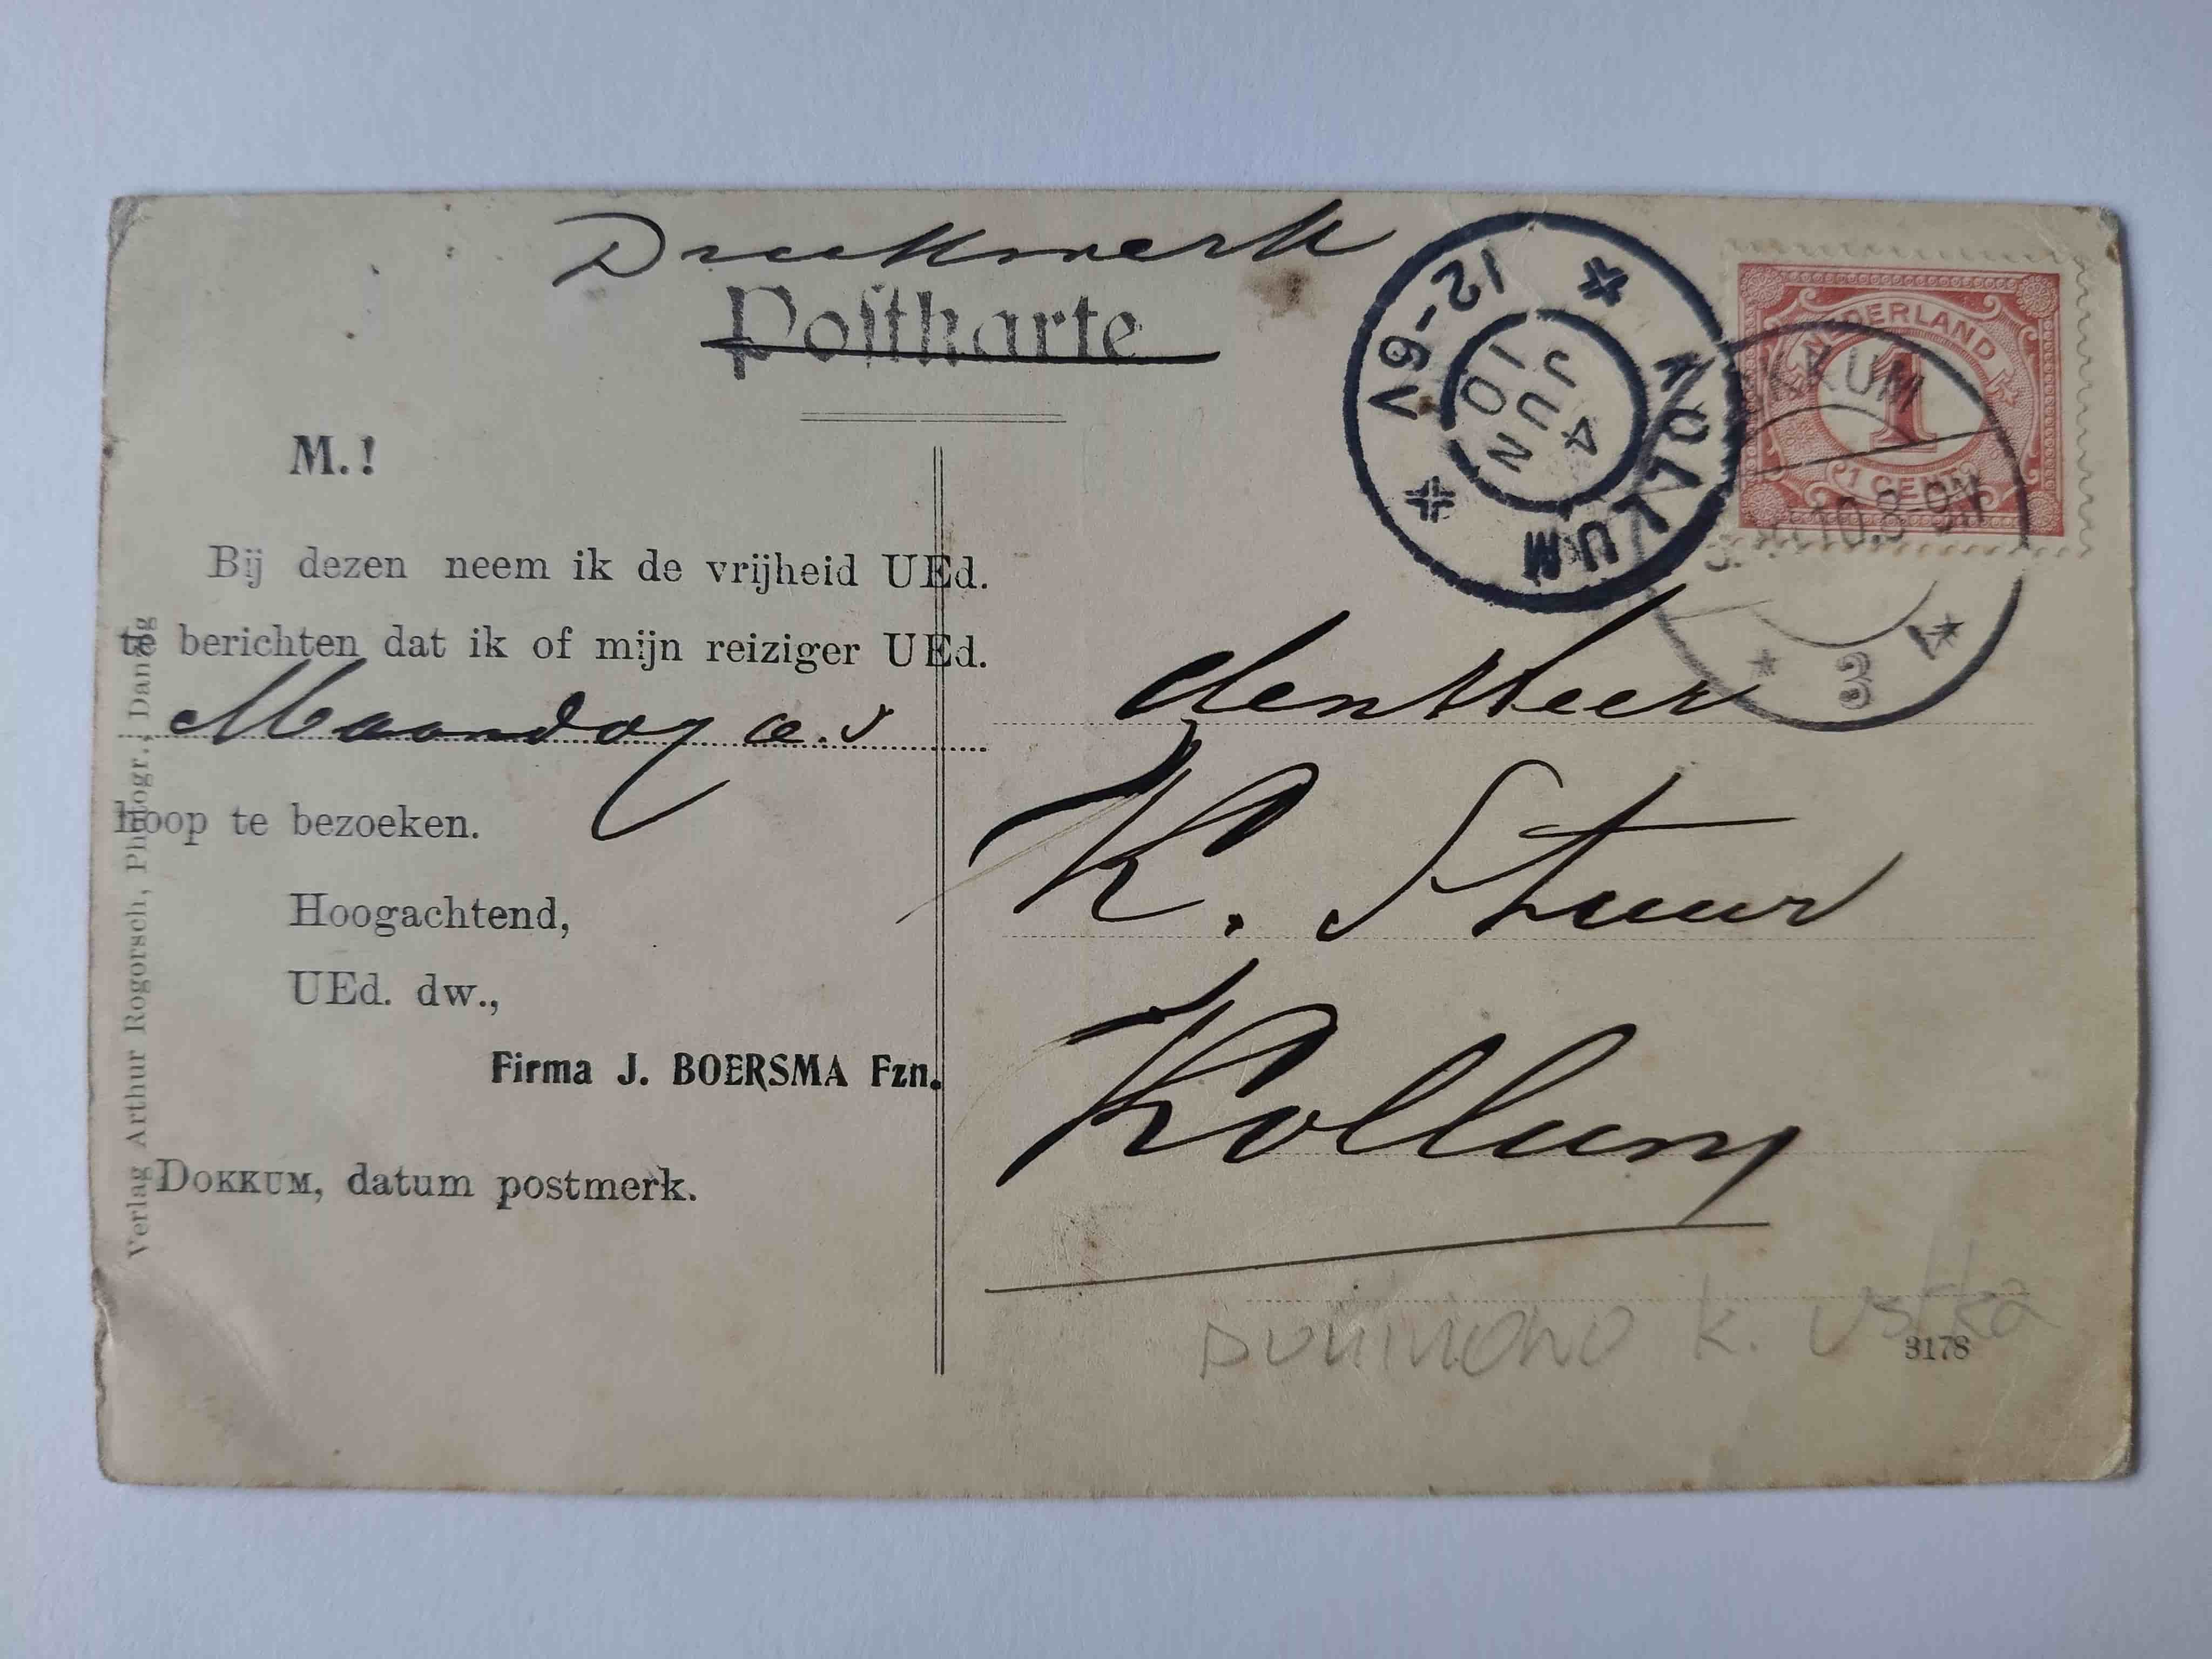 Drukwerk
Postkarte
M.!
Bij dezen neem ik de vrijheid UEd.
te berichten dat ik of mijn reiziger UEd.
Maandag a.s
hoop te bezoeken.
Hoogachtend,
UEd. dw.,
Firma J. BOERSMA Fzn.
DOKKUM, datum postmerk.
Verlag Arthur Rogorsch, Photogr., Danzig
KOLLUM
12-6V
4
JUN
10
NEDERLAND
1
1 CENT
DOKKUM
10.8-9N
3
den Heer
K. Stuur
Kollum
k. Ustka
3178